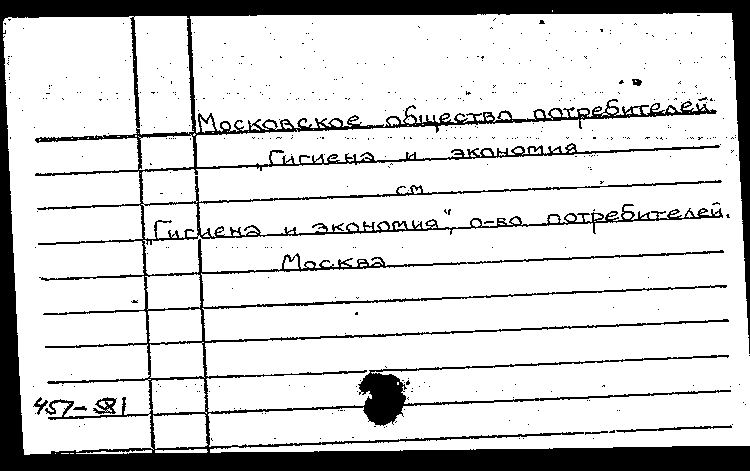 Московское общество потребителей
„Гигиена и экономия
см
„Гигиена и экономия", о-во потребителей.
Москва
457-581